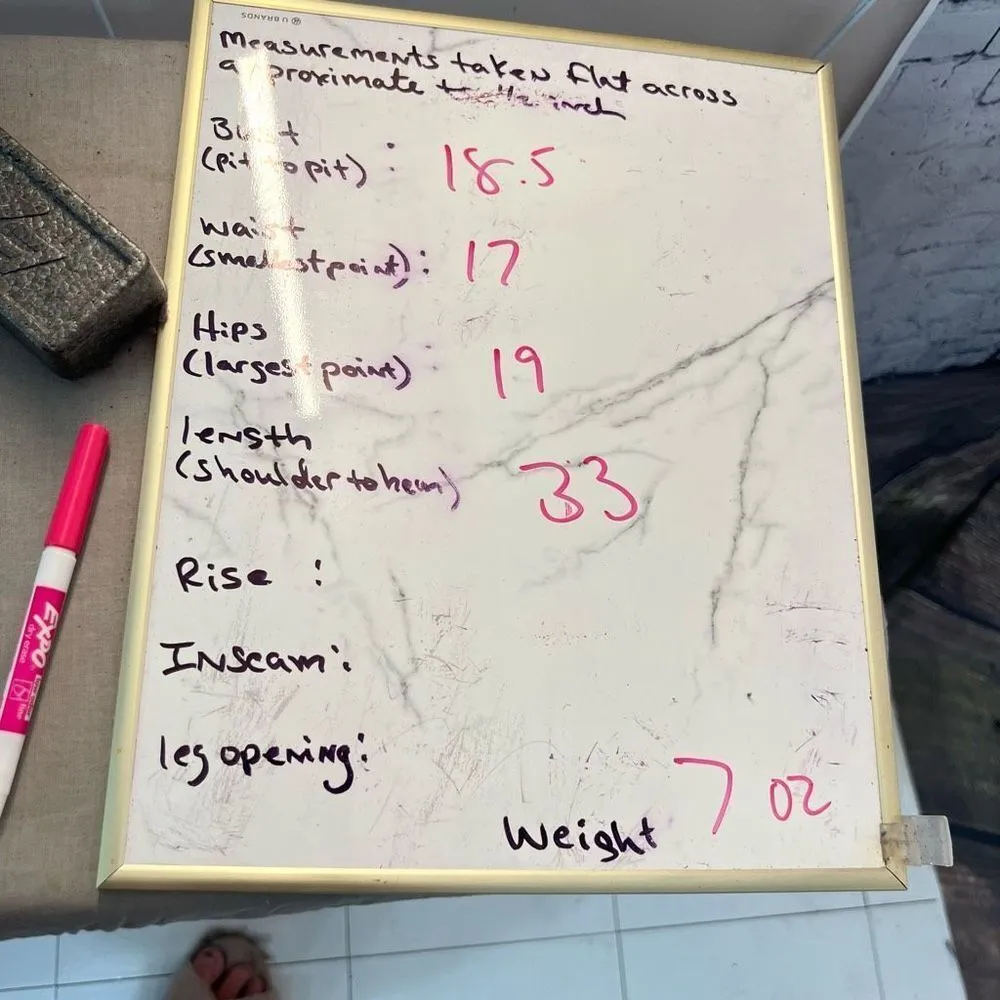 U BRANDS
Measurements taken flat across
approximate to 1/2 inch
Bust
(pit to pit) : 18.5
waist
(smallest point) : 17
Hips
(largest point) : 19
length
(shoulder to hem) 33
Rise :
Inseam :
leg opening :
7 oz
Weight
EXPO
dry erase
fine